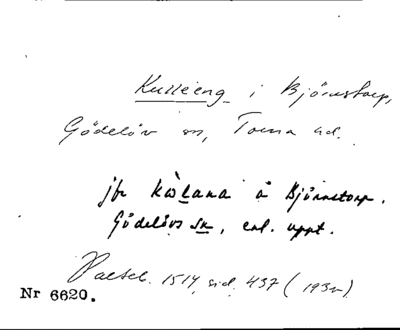 Kulleäng i Björnstorp,
Gödelöv sn, Torna hd.
jfr på Björnstorp.
Gödelövs sn, enl. uppt.
1514, sid. 437 (1932)
Nr 6620.